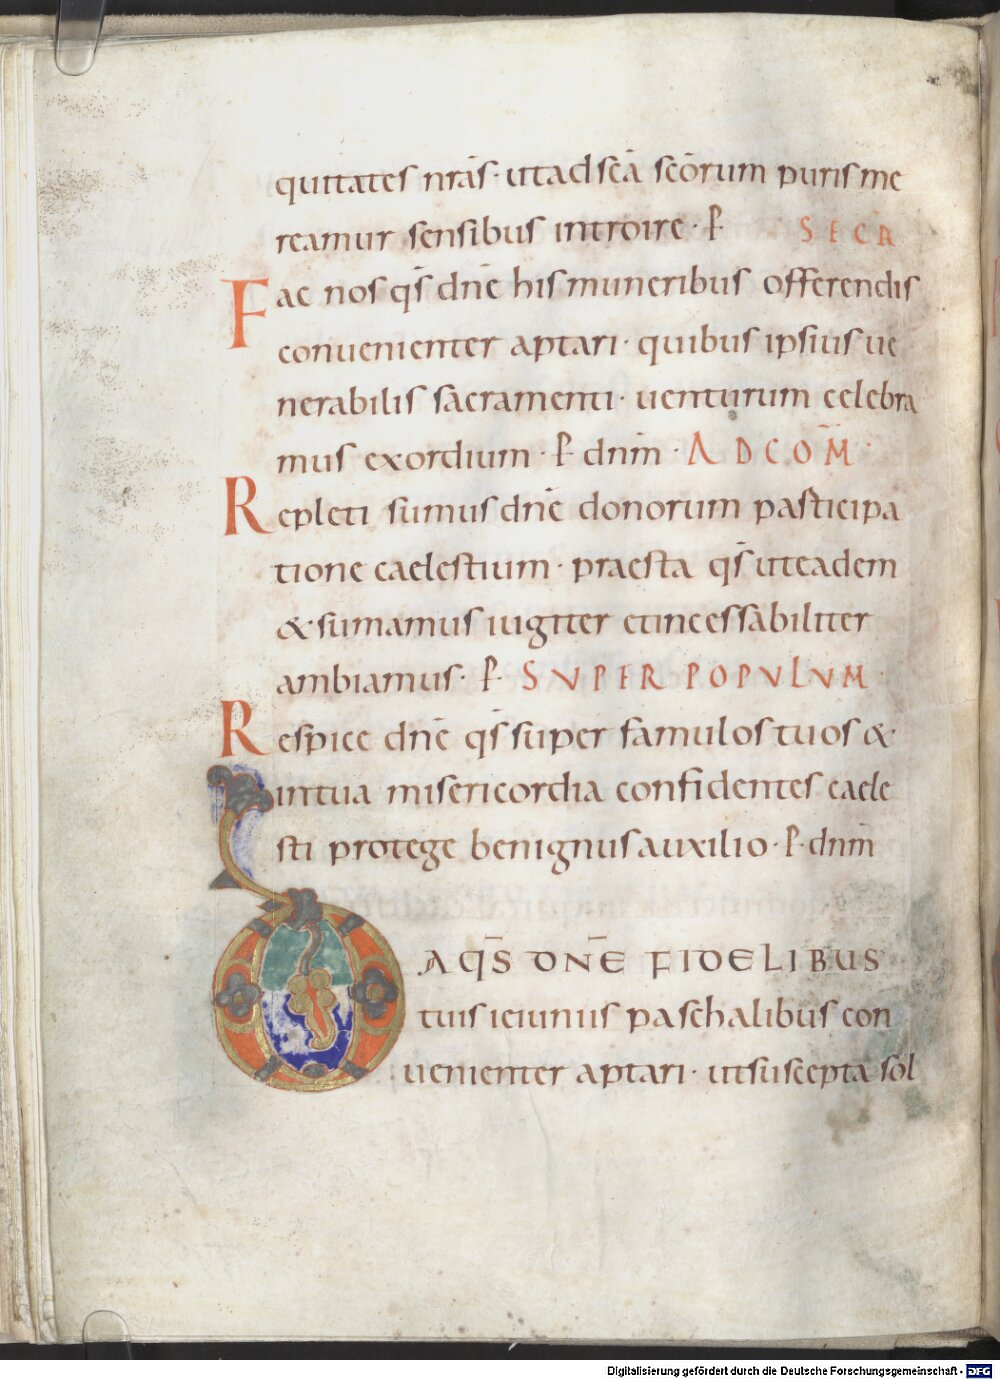 quitates nrās· utad scā scōrum puris me
reamur sensibus introire· P̄ SECR̄
Fac nos qs̄ dnē his muneribus offerendis
conuenienter aptari· quibus ipsius ue
nerabilis sacramenti· uenturum celebra
mus exordium· P̄ dnm̄· ADCOM̄
Repleti sumus dnē donorum participa
tione caelestium· praesta qs̄ uteadem
& sumamus iugiter etincessabiliter
ambiamus· P̄· SUPER POPULUM
Respice dnē qs̄ super famulos tuos &
intua misericordia confidentes caele
sti protege benignus auxilio· P̄· dnm̄
DA QS̄ DNĒ FIDELIBUS
tuis ieiuniis paschalibus con
uenienter aptari· utsuscepta sol
Digitalisierung gefördert durch die Deutsche Forschungsgemeinschaft - DFG